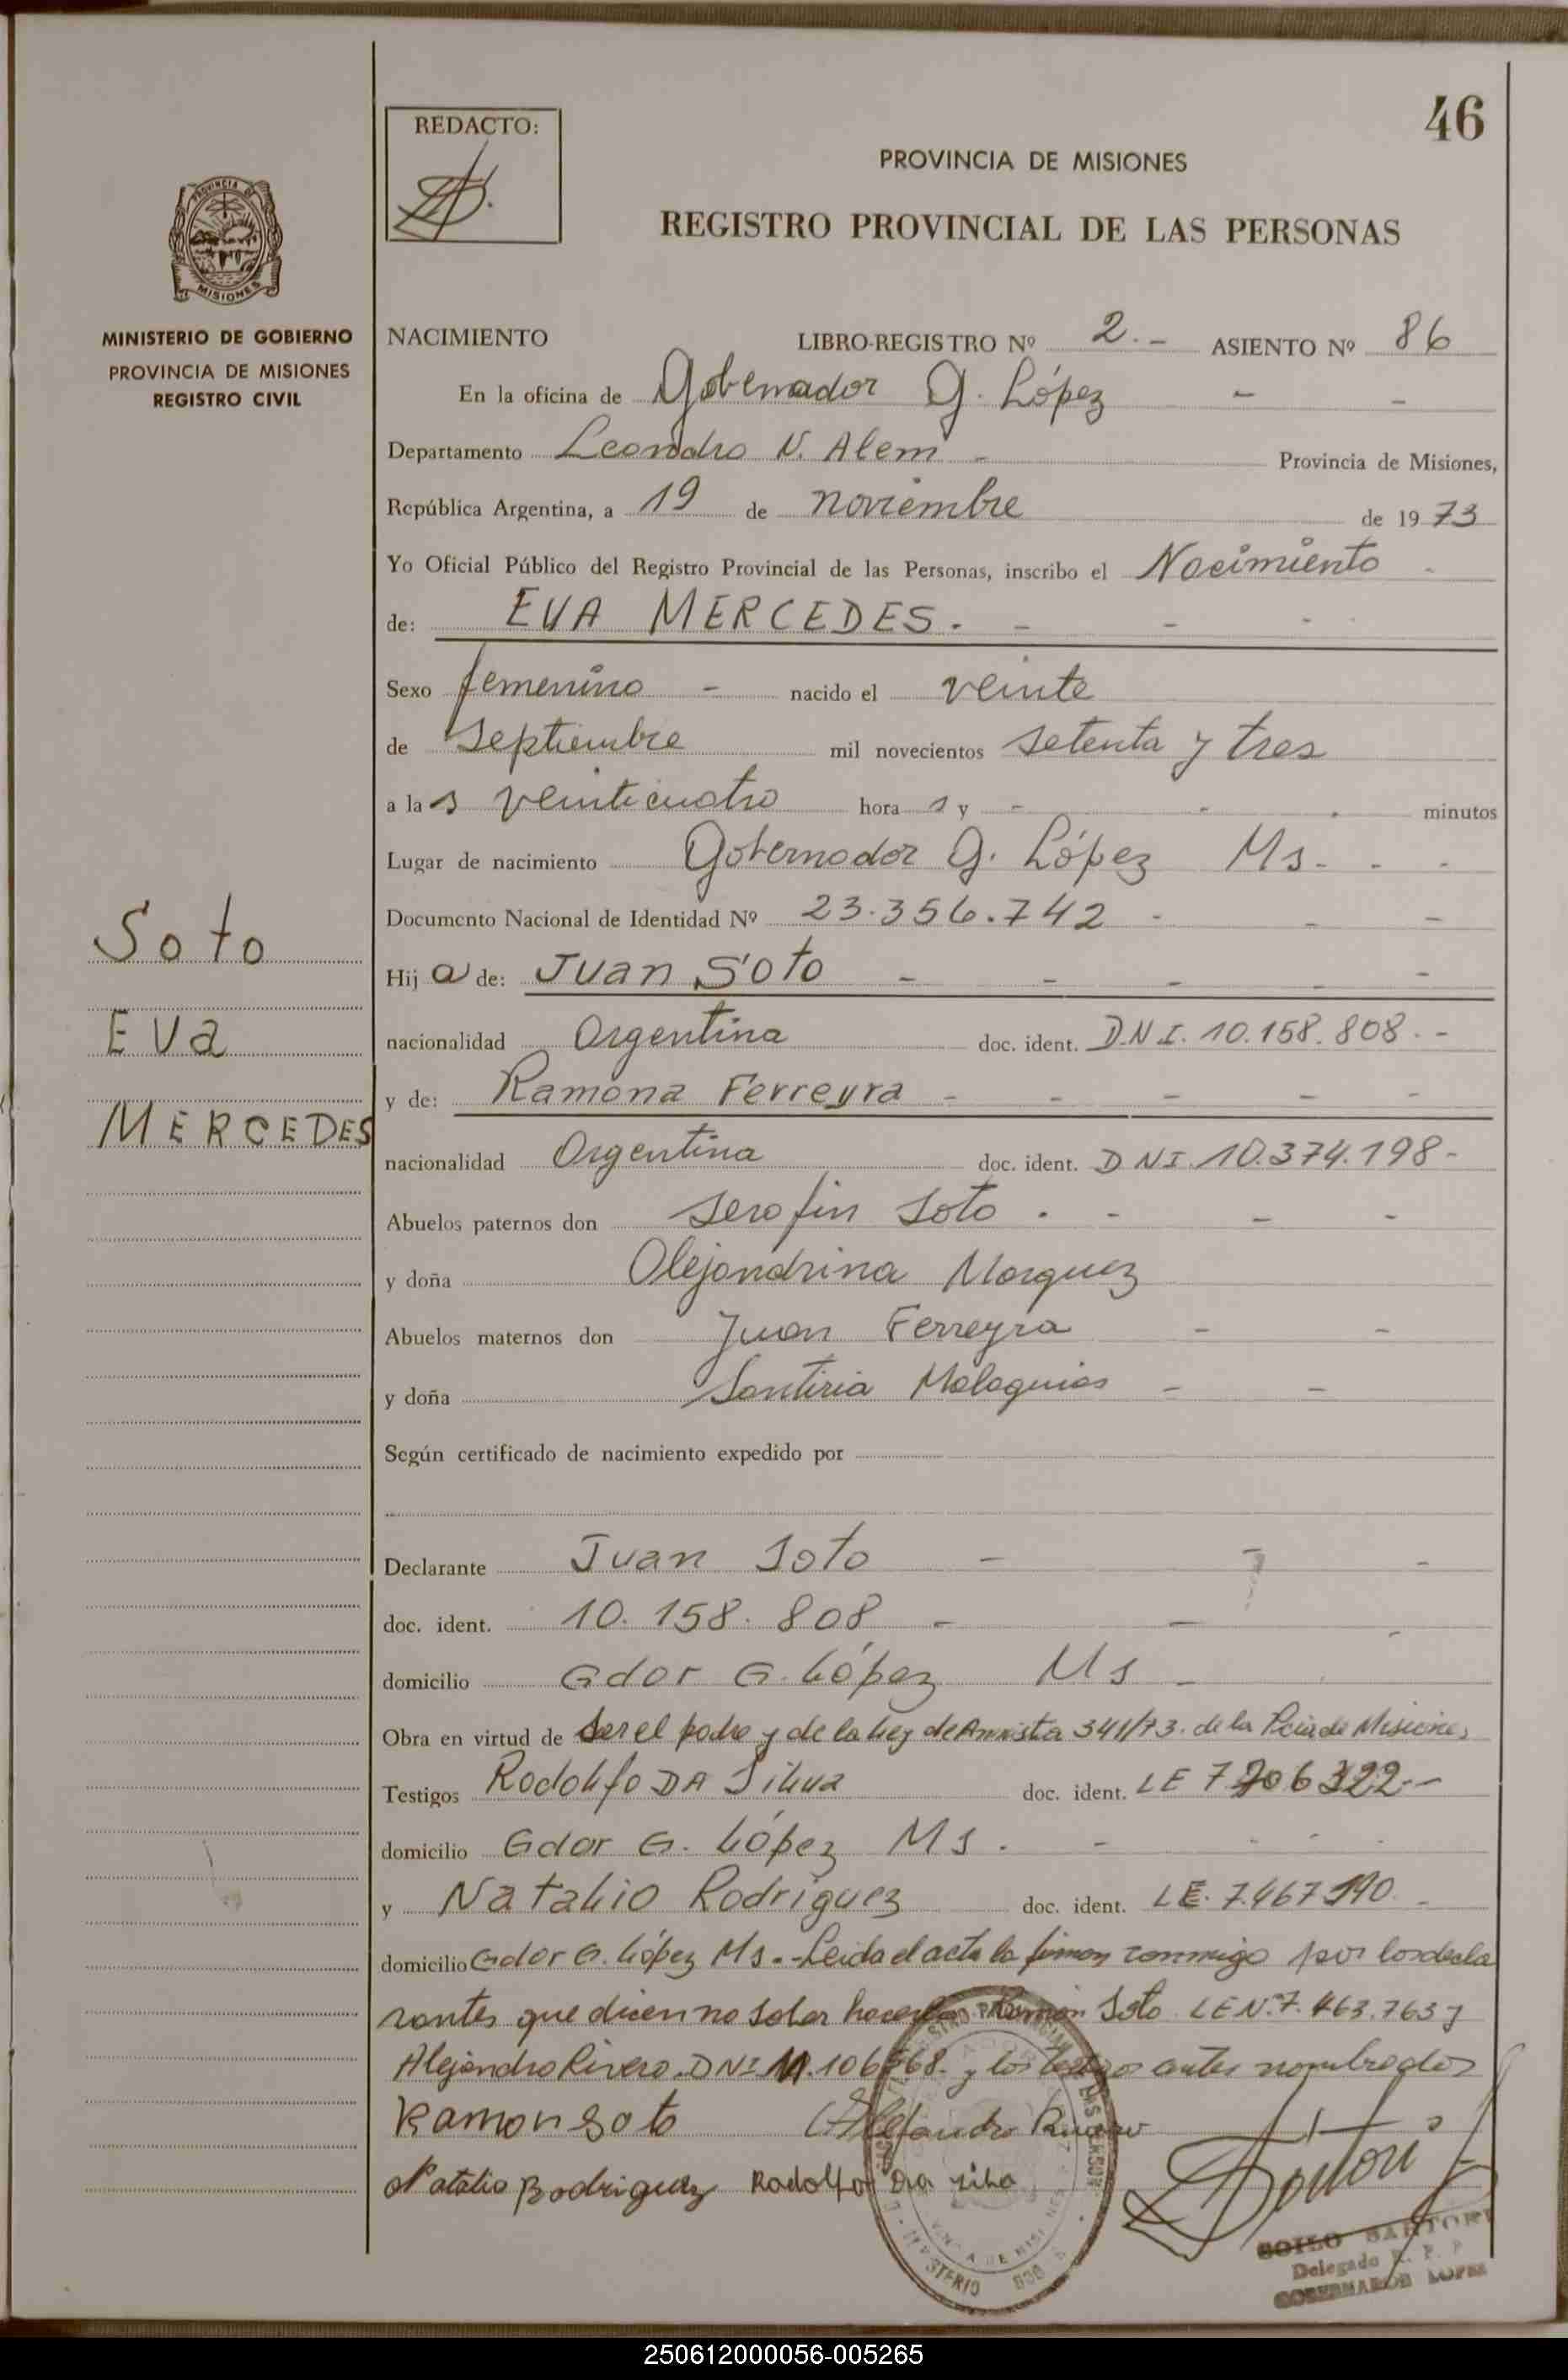 46
REDACTO:
PROVINCIA DE MISIONES
REGISTRO PROVINCIAL DE LAS PERSONAS
PROVINCIA DE
MISIONES
MINISTERIO DE GOBIERNO
PROVINCIA DE MISIONES
REGISTRO CIVIL
NACIMIENTO LIBRO-REGISTRO Nº 2.- ASIENTO Nº 86
En la oficina de Gobernador G. López - -
Departamento Leandro N. Alem - Provincia de Misiones,
República Argentina, a 19 de noviembre de 19 73
Yo Oficial Público del Registro Provincial de las Personas, inscribo el Nacimiento -
de: EVA MERCEDES. - - -
Sexo femenino - nacido el veinte
de Septiembre mil novecientos setenta y tres
a la s veinticuatro hora s y - - - minutos
Lugar de nacimiento Gobernador G. López Ms. - -
Documento Nacional de Identidad Nº 23.356.742 - - -
Soto
Hij a de: Juan Soto - - - - -
Eva
nacionalidad Argentina doc. ident. D.N.I. 10.158.808. -
y de: Ramona Ferreyra - - - - -
MERCEDES
nacionalidad Argentina doc. ident. DNI. 10.374.198-
Abuelos paternos don Serafin Soto . - - -
y doña Alejandrina Marquez
Abuelos maternos don Juan Ferreyra - -
y doña Santiria Malaquias - -
Según certificado de nacimiento expedido por
Declarante Juan Soto - - -
doc. ident. 10.158.808 - - -
domicilio Gdor G. López Ms -
Obra en virtud de ser el padre y de la Ley de Amnistia 341/73. de la Pcia de Misiones
Testigos Rodolfo DA Silva doc. ident. LE 7.206322.--
domicilio Gdor G. López Ms. - - - -
y Natalio Rodriguez doc. ident. LE. 7.467.190. -
domicilio Gdor G. López Ms.-Leida el acta la firman conmigo por los decla
rantes que dicen no saber hacerlo Ramón Soto LE Nº 7.463.763 y
Alejandro Rivero DNI 11.106568- y los testigos antes nombrados
Ramon Soto Alejandro Rivero
Natalio Rodriguez Rodolfo Da Silva
ZOILO SARTORI
Delegado R. P. P
GOBERNADOR LOPEZ
250612000056-005265